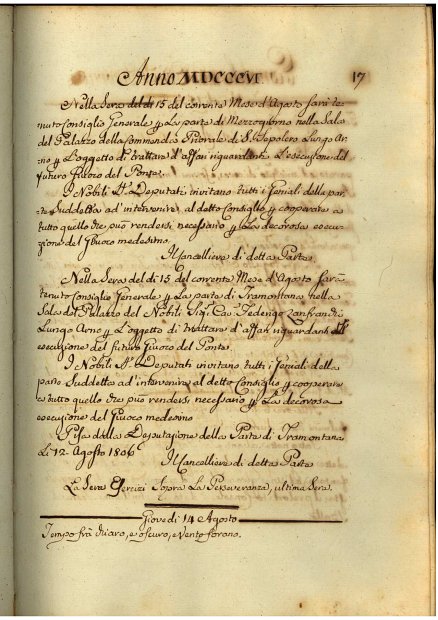 Anno MDCCCVI. 17
Nella Sera del dì 15 del corrente Mese d'Agosto sarà te-
nuto Consiglio Generale p La parte di Mezzogiorno nella Sala
del Palazzo della Commenda Priorale di S. Sepolcro Lungo Ar-
no p L'oggetto di trattare d'affari riguardanti L'esecuzione del
futuro Giuoco del Ponte.
I Nobili SS.ri Deputati invitano tutti i Geniali della par-
te Suddetta ad'intervenire al detto Consiglio p cooperare a
tutto quello che può rendersi necessario p La decorosa esecu-
zione del Giuoco medesimo.
Il Cancelliere di detta Parte.
Nella Sera del dì 15 del corrente Mese d'Agosto sarà
tenuto Consiglio Generale p La parte di Tramontana nella
Sala del Palazzo del Nobile Sig. Cav. Federigo Lanfranchi
Lungo Arno p L'oggetto di trattare d'affari riguardanti L'
esecuzione del futuro Giuoco del Ponte.
I Nobili SS.ri Deputati invitano tutti i Geniali della
parte Suddetta ad'intervenire al detto Consiglio p cooperare
a tutto quello che può rendersi necessario p La decorosa
esecuzione del Giuoco medesimo
Pisa dalla Deputazione della Parte di Tramontana
Li 12. Agosto 1806
Il Cancelliere di detta Parte
La Sera Esercizi Sopra La Perseveranza, ultima Sera.
Giovedì 14 Agosto
Tempo frà chiaro, e oscuro, e Vento forano.